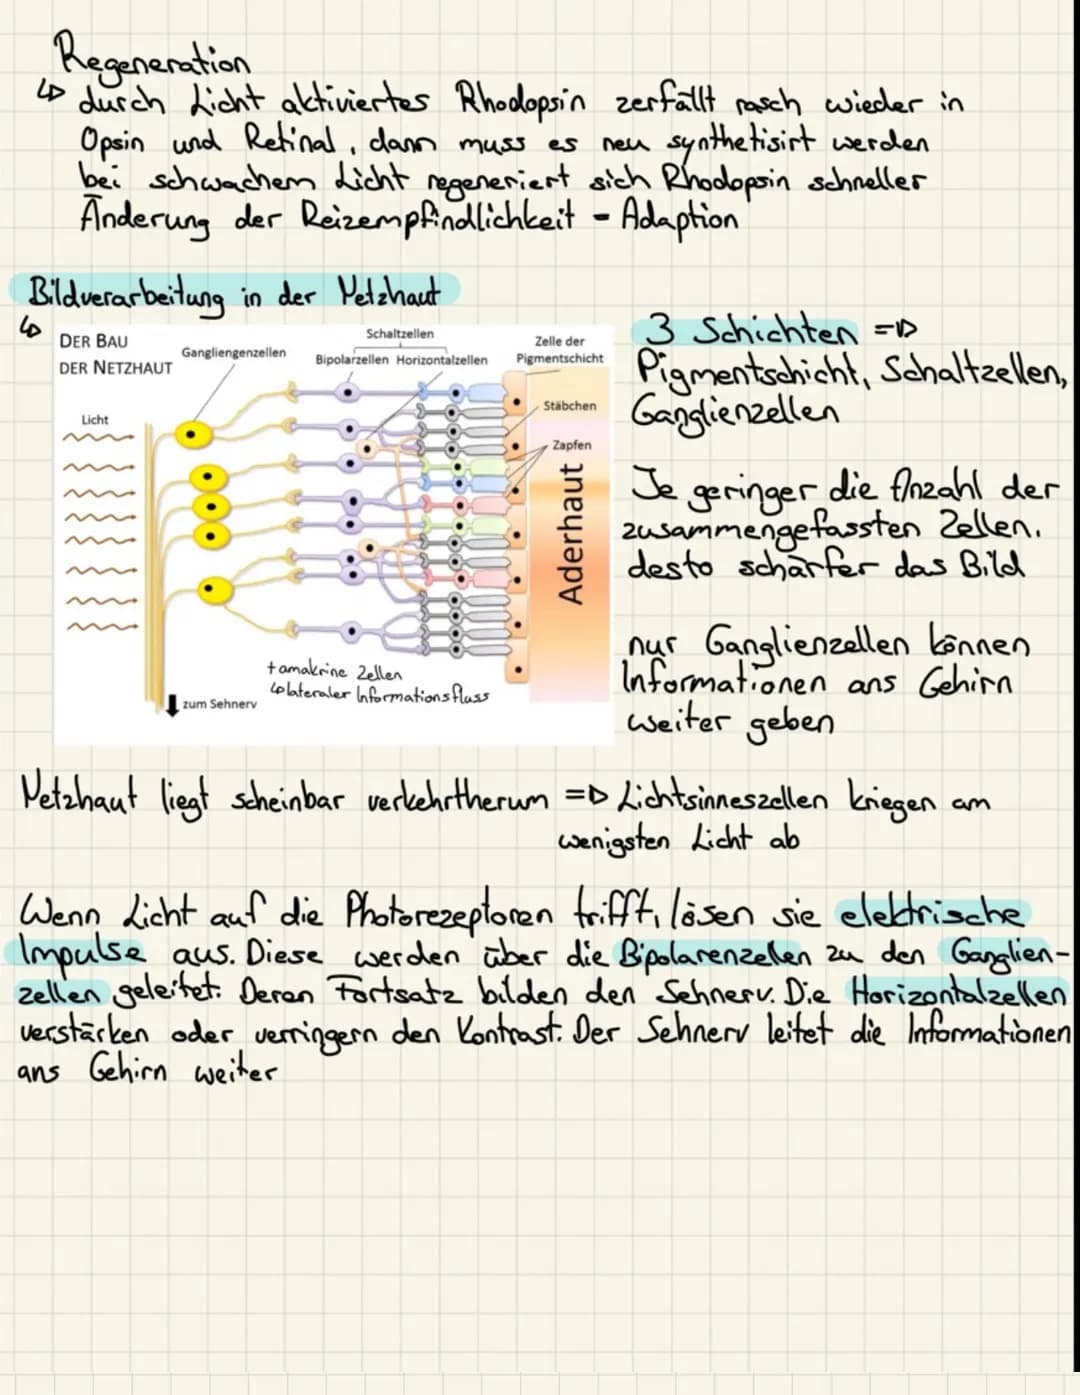 Regeneration
↳ durch Licht aktiviertes Rhodopsin zerfällt rasch wieder in
Opsin und Retinal, dann muss es neu synthetisirt werden
bei schwachem Licht regeneriert sich Rhodopsin schneller
Änderung der Reizempfindlichkeit - Adaption
Bildverarbeitung in der Netzhaut
↳
DER BAU
DER NETZHAUT
Gangliengenzellen
Schaltzellen
Bipolarzellen Horizontalzellen
Zelle der
Pigmentschicht
Licht
Stäbchen
Zapfen
Aderhaut
+ amakrine Zellen
↳ lateraler Informationsfluss
zum Sehnerv
3 Schichten =>
Pigmentschicht, Schaltzellen,
Ganglienzellen
Je geringer die Anzahl der
zusammengefassten Zellen,
desto schärfer das Bild
nur Ganglienzellen können
Informationen ans Gehirn
weiter geben
Netzhaut liegt scheinbar verkehrtherum => Lichtsinneszellen kriegen am
wenigsten Licht ab
Wenn Licht auf die Photorezeptoren trifft, lösen sie elektrische
Impulse aus. Diese werden über die Bipolarenzellen zu den Ganglien-
zellen geleitet. Deren Fortsatz bilden den Sehnerv. Die Horizontalzellen
verstärken oder verringern den Kontrast. Der Sehnerv leitet die Informationen
ans Gehirn weiter